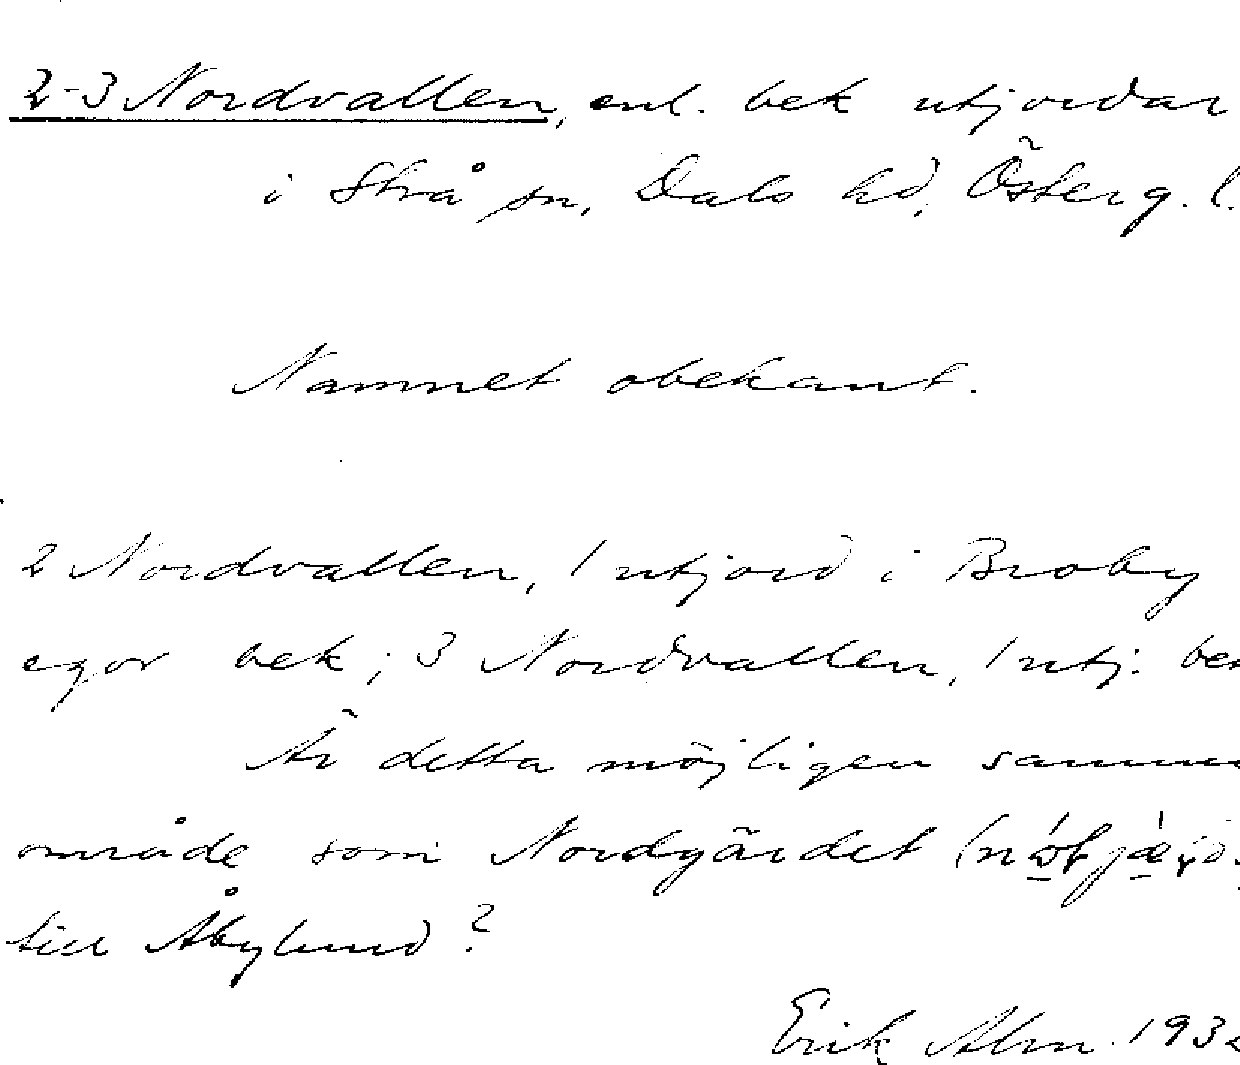 2-3 Nordvallen, enl. bek utjordar
i Strå sn, Dals hd, Österg. l.
Namnet obekant.
2 Nordvallen, 1 utjord i Broby
egor bek; 3 Nordvallen, 1 utj. bek
Är detta möjligen samma
område som Nordgärdet
till Åbylund?
Erik Alm. 1932